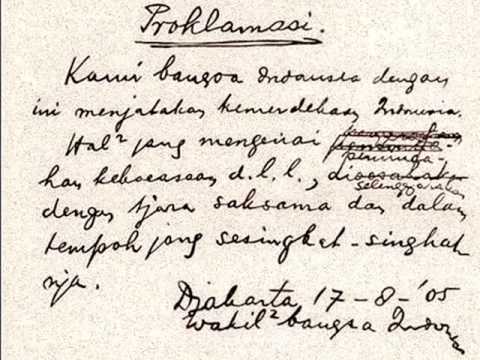 Proklamasi.
Kami bangsa Indonesia dengan
ini menjatakan kemerdekaan Indonesia.
Hal² jang mengenai
peminda-
han keboeasaan d.l.l.,
diselenggarakan
dengan tjara saksama dan dalam
tempoh jang sesingkat-singkat
nja.
Djakarta 17-8-'05
Wakil² bangsa Indonesia